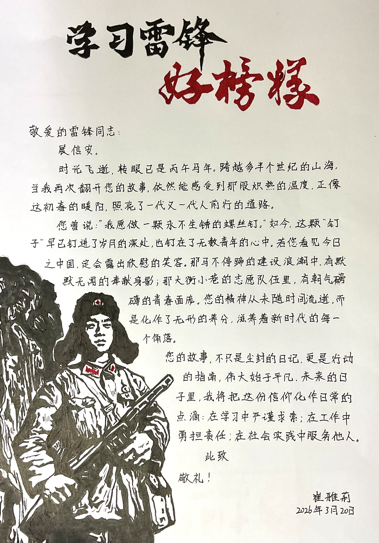 学习雷锋
好榜样
敬爱的雷锋同志:
展信安。
时光飞逝,转眼已是丙午马年。跨越多半个世纪的山海,
当我再次翻开您的故事,依然能感受到那股炽热的温度,正像
这初春的暖阳,照亮了一代又一代人前行的道路。
您曾说:“我愿做一颗永不生锈的螺丝钉。”如今,这颗“钉
子”早已钉进了岁月的深处,也钉在了无数青年的心中。若您看见今日
之中国,定会露出欣慰的笑容。那马不停蹄的建设浪潮中,有默
默无闻的奉献身影;那大街小巷的志愿队伍里,有朝气磅
礴的青春面庞。您的精神从未随时间流逝,而
是化作了无形的养分,滋养着新时代的每一
个角落。
您的故事,不只是尘封的日记,更是行动
的指南,伟大始于平凡,未来的日
子里,我将把这份信仰化作日常的
点滴:在学习中严谨求索;在工作中
勇担责任;在社会实践中服务他人。
此致
敬礼!
崔雅莉
2026年3月20日